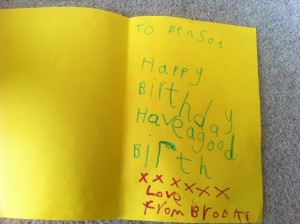 To Benson
Happy
Birthday
Have a good
Birth
x x x x x x
Love
from Brooke